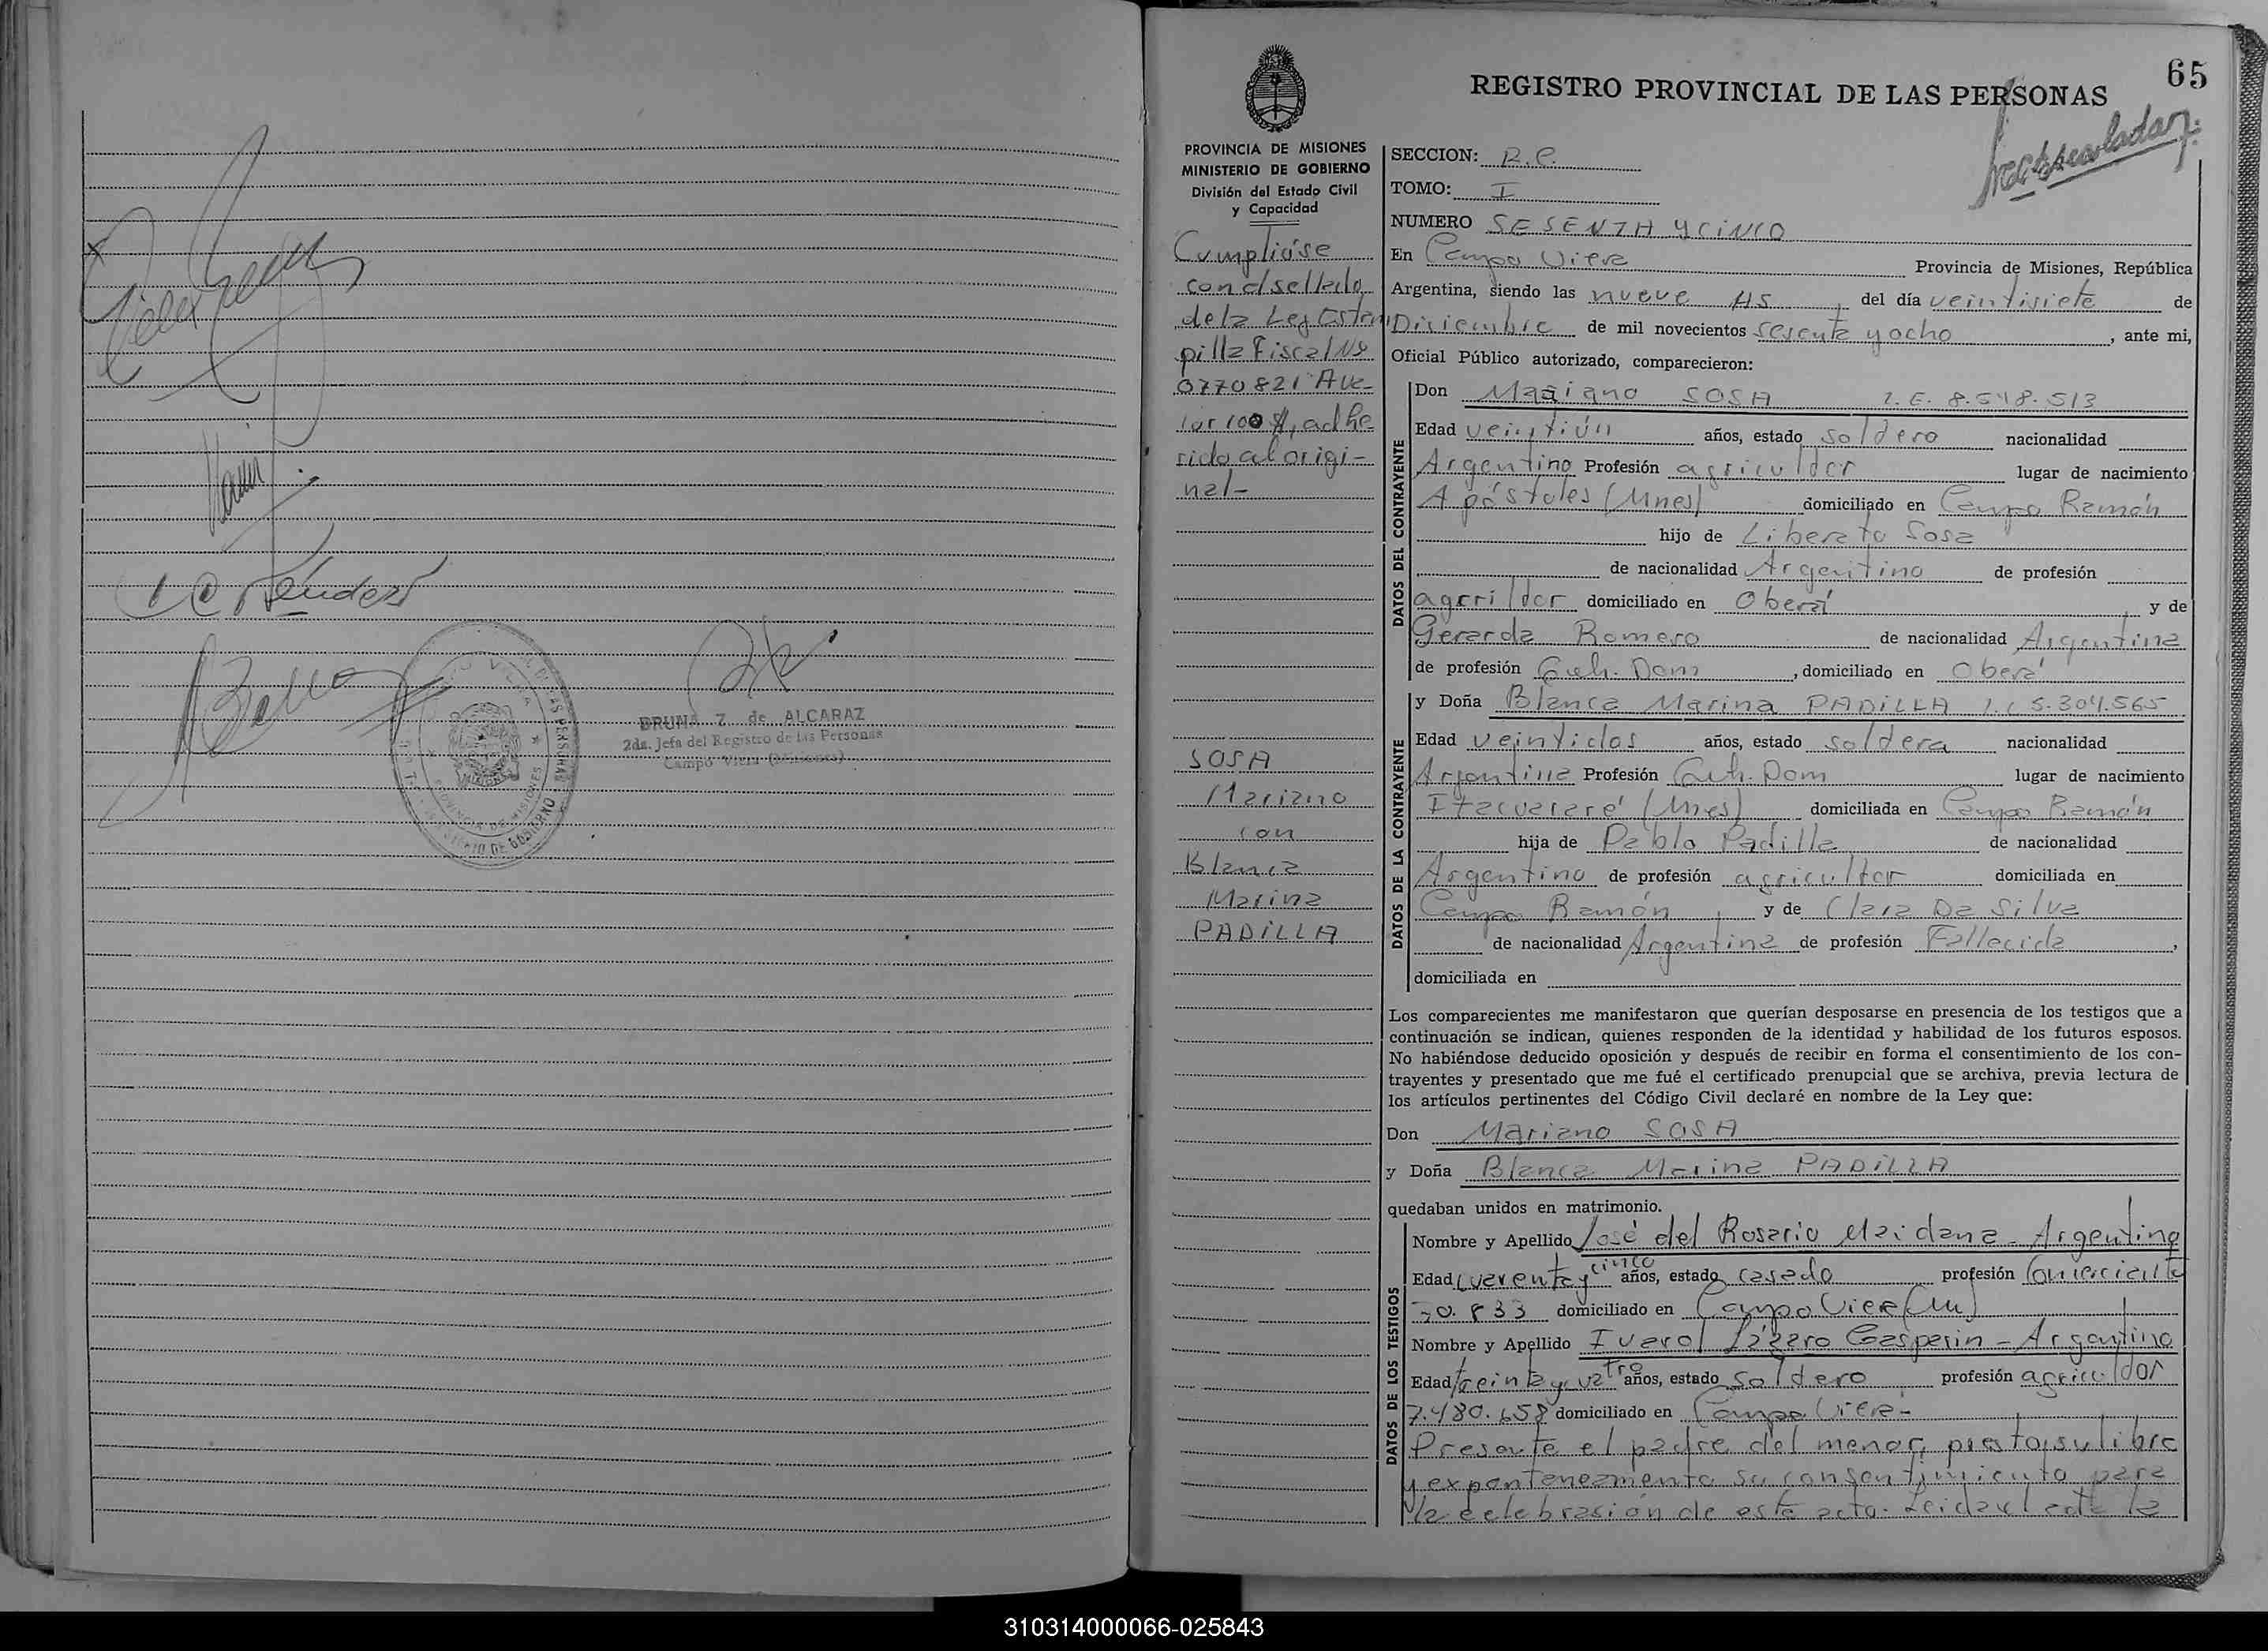 BRUNA Z. de ALCARAZ
2da. Jefa del Registro de las Personas
Campo Viera (Misiones)
65
REGISTRO PROVINCIAL DE LAS PERSONAS
PROVINCIA DE MISIONES
MINISTERIO DE GOBIERNO
División del Estado Civil
y Capacidad
Cumplióse
con el sellado
de la Ley Estam
pilla Fiscal Nº
0770821 Va-
lor 100 $, adhe
rido al origi-
nal-
SOSA
Mariano
con
Blanca
Marina
PADILLA
SECCION: R.C.
TOMO: I
NUMERO SESENTA Y CINCO
En Campo Viera Provincia de Misiones, República
Argentina, siendo las nueve HS, del día veintisiete de
Diciembre de mil novecientos sesenta y ocho, ante mi,
Oficial Público autorizado, comparecieron:
DATOS DEL CONTRAYENTE
Don Mariano SOSA L.E. 8.548.513
Edad veintiún años, estado soldero nacionalidad
Argentino Profesión agriculdor lugar de nacimiento
Apóstoles (Mnes) domiciliado en Campo Ramón
hijo de Liberato Sosa
de nacionalidad Argentino de profesión
agcrildor domiciliado en Oberá y de
Gerarda Romero de nacionalidad Argentina
de profesión Queh. Dom, domiciliado en Oberá
DATOS DE LA CONTRAYENTE
y Doña Blanca Marina PADILLA L.C 5.304.565
Edad veintidos años, estado soldera nacionalidad
Argentina Profesión Queh. Dom lugar de nacimiento
Itacuararé (Mnes) domiciliada en Campo Ramón
hija de Pablo Padilla de nacionalidad
Argentino de profesión agricultor domiciliada en
Campo Ramón, y de Clara Da Silva
de nacionalidad Argentina de profesión Fallecida,
domiciliada en
Los comparecientes me manifestaron que querían desposarse en presencia de los testigos que a
continuación se indican, quienes responden de la identidad y habilidad de los futuros esposos.
No habiéndose deducido oposición y después de recibir en forma el consentimiento de los con-
trayentes y presentado que me fué el certificado prenupcial que se archiva, previa lectura de
los artículos pertinentes del Código Civil declaré en nombre de la Ley que:
Don Mariano SOSA
y Doña Blanca Marina PADILLA
quedaban unidos en matrimonio.
DATOS DE LOS TESTIGOS
Nombre y Apellido José del Rosario Maidana - Argentino
Edad cuarenta y cinco años, estado casado profesión Comerciante
30.833 domiciliado en Campo Viera (Mn)
Nombre y Apellido Lázaro Gasperin - Argentino
Edad treinta y años, estado soldero profesión agriculdor
7.480.658 domiciliado en Campo Viera-
Presente el padre del menor, presta su libre
y expontaneamento su consentimiento para
la celebrasión de este acto. Leida el acta la
310314000066-025843